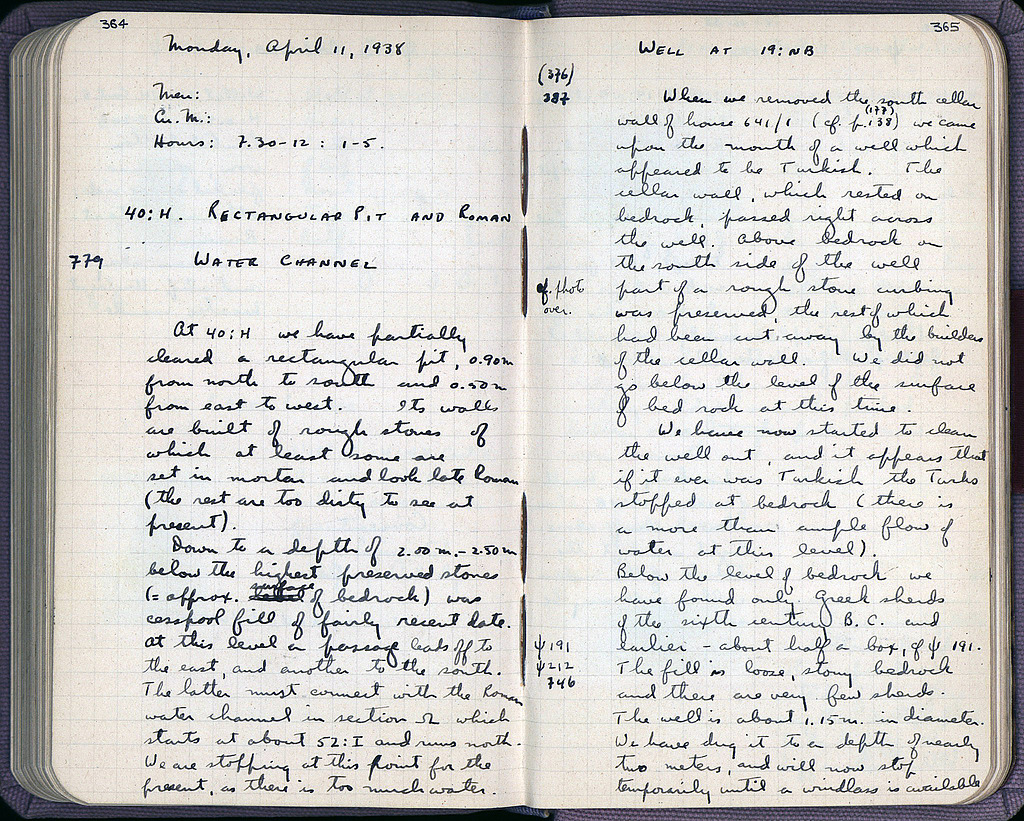 364
Monday, April 11, 1938
Men:
Cu. M.:
Hours: 7.30-12 : 1-5.
40:H. RECTANGULAR PIT AND ROMAN
779 WATER CHANNEL
At 40:H we have partially
cleared a rectangular pit, 0.90m
from north to south and 0.50m
from east to west. Its walls
are built of rough stones of
which at least some are
set in mortar and look late Roman
(the rest are too dirty to see at
present).
Down to a depth of 2.00 m.-2.50m
below the highest preserved stones
(= approx. surface of bedrock) was
cesspool fill of fairly recent date.
At this level a passage leads off to
the east, and another to the south.
The latter must connect with the Roman
water channel in section Ω which
starts at about 52:I and runs north.
We are stopping at this point for the
present, as there is too much water.
365
WELL AT 19:NB
(376)
387 When we removed the south cellar
wall of house 641/1 (cf. p. 138 (177)) we came
upon the mouth of a well which
appeared to be Turkish. The
cellar wall, which rested on
bedrock, passed right across
the well. Above bedrock on
the south side of the well
cf. photo over. part of a rough stone curbing
was preserved, the rest of which
had been cut away by the builders
of the cellar wall. We did not
go below the level of the surface
of bed rock at this time.
We have now started to clean
the well out, and it appears that
if it ever was Turkish the Turks
stopped at bedrock (there is
a more than ample flow of
water at this level).
Below the level of bedrock we
have found only Greek sherds
of the sixth century B.C. and
ψ 191 earlier - about half a box, of ψ 191.
ψ 212 The fill is loose, stony bedrock
746 and there are very few sherds.
The well is about 1.15m. in diameter.
We have dug it to a depth of nearly
two meters, and will now stop
temporarily until a windlass is available